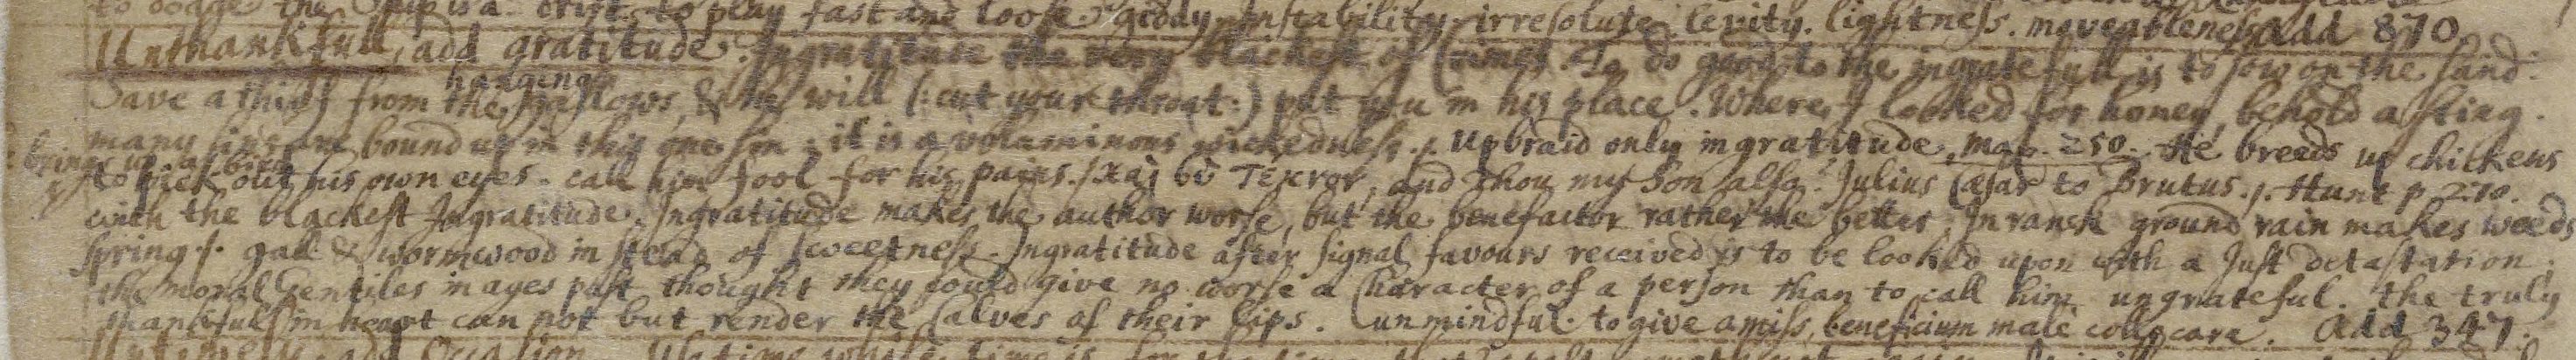 to dodge the Ship is a drift. to play fast and loose. giddy instability irresolute levity. lightness. moveableness add 870
Unthankfull, add gratitude. Ingratitude the very blackest of Crimes. To do good to the ingratefull is to sow on the sand.
hanging
Save a thief from the gallows, & he will (: cut your throat :) put you in his place. Where I looked for honey, behold a sting.
many sins are bound up in this one sin; it is a voluminous wickedness. /. Upbraid only ingratitude, man. 250. He breeds up chickens
brings up a bird
to pick out his own eyes. call him fool for his pains. / Καὶ σὺ Τέκνον, and Thou my Son also? Julius Cæsar to Brutus. /. Hunt p 270.
with the blackest Ingratitude. Ingratitude makes the author worse, but the benefactor rather the better. In rank ground rain makes weeds
spring /. gall & wormwood in stead of sweetness. Ingratitude after signal favours received is to be looked upon with a Just detastation.
the moral Gentiles in ages past thought they could give no worse a Character of a person than to call him ungrateful. the truly
thankfull in heart can not but render the Calves of their lips. unmindful. to give amiss, beneficium male collocare. Add 347.
add Occasion